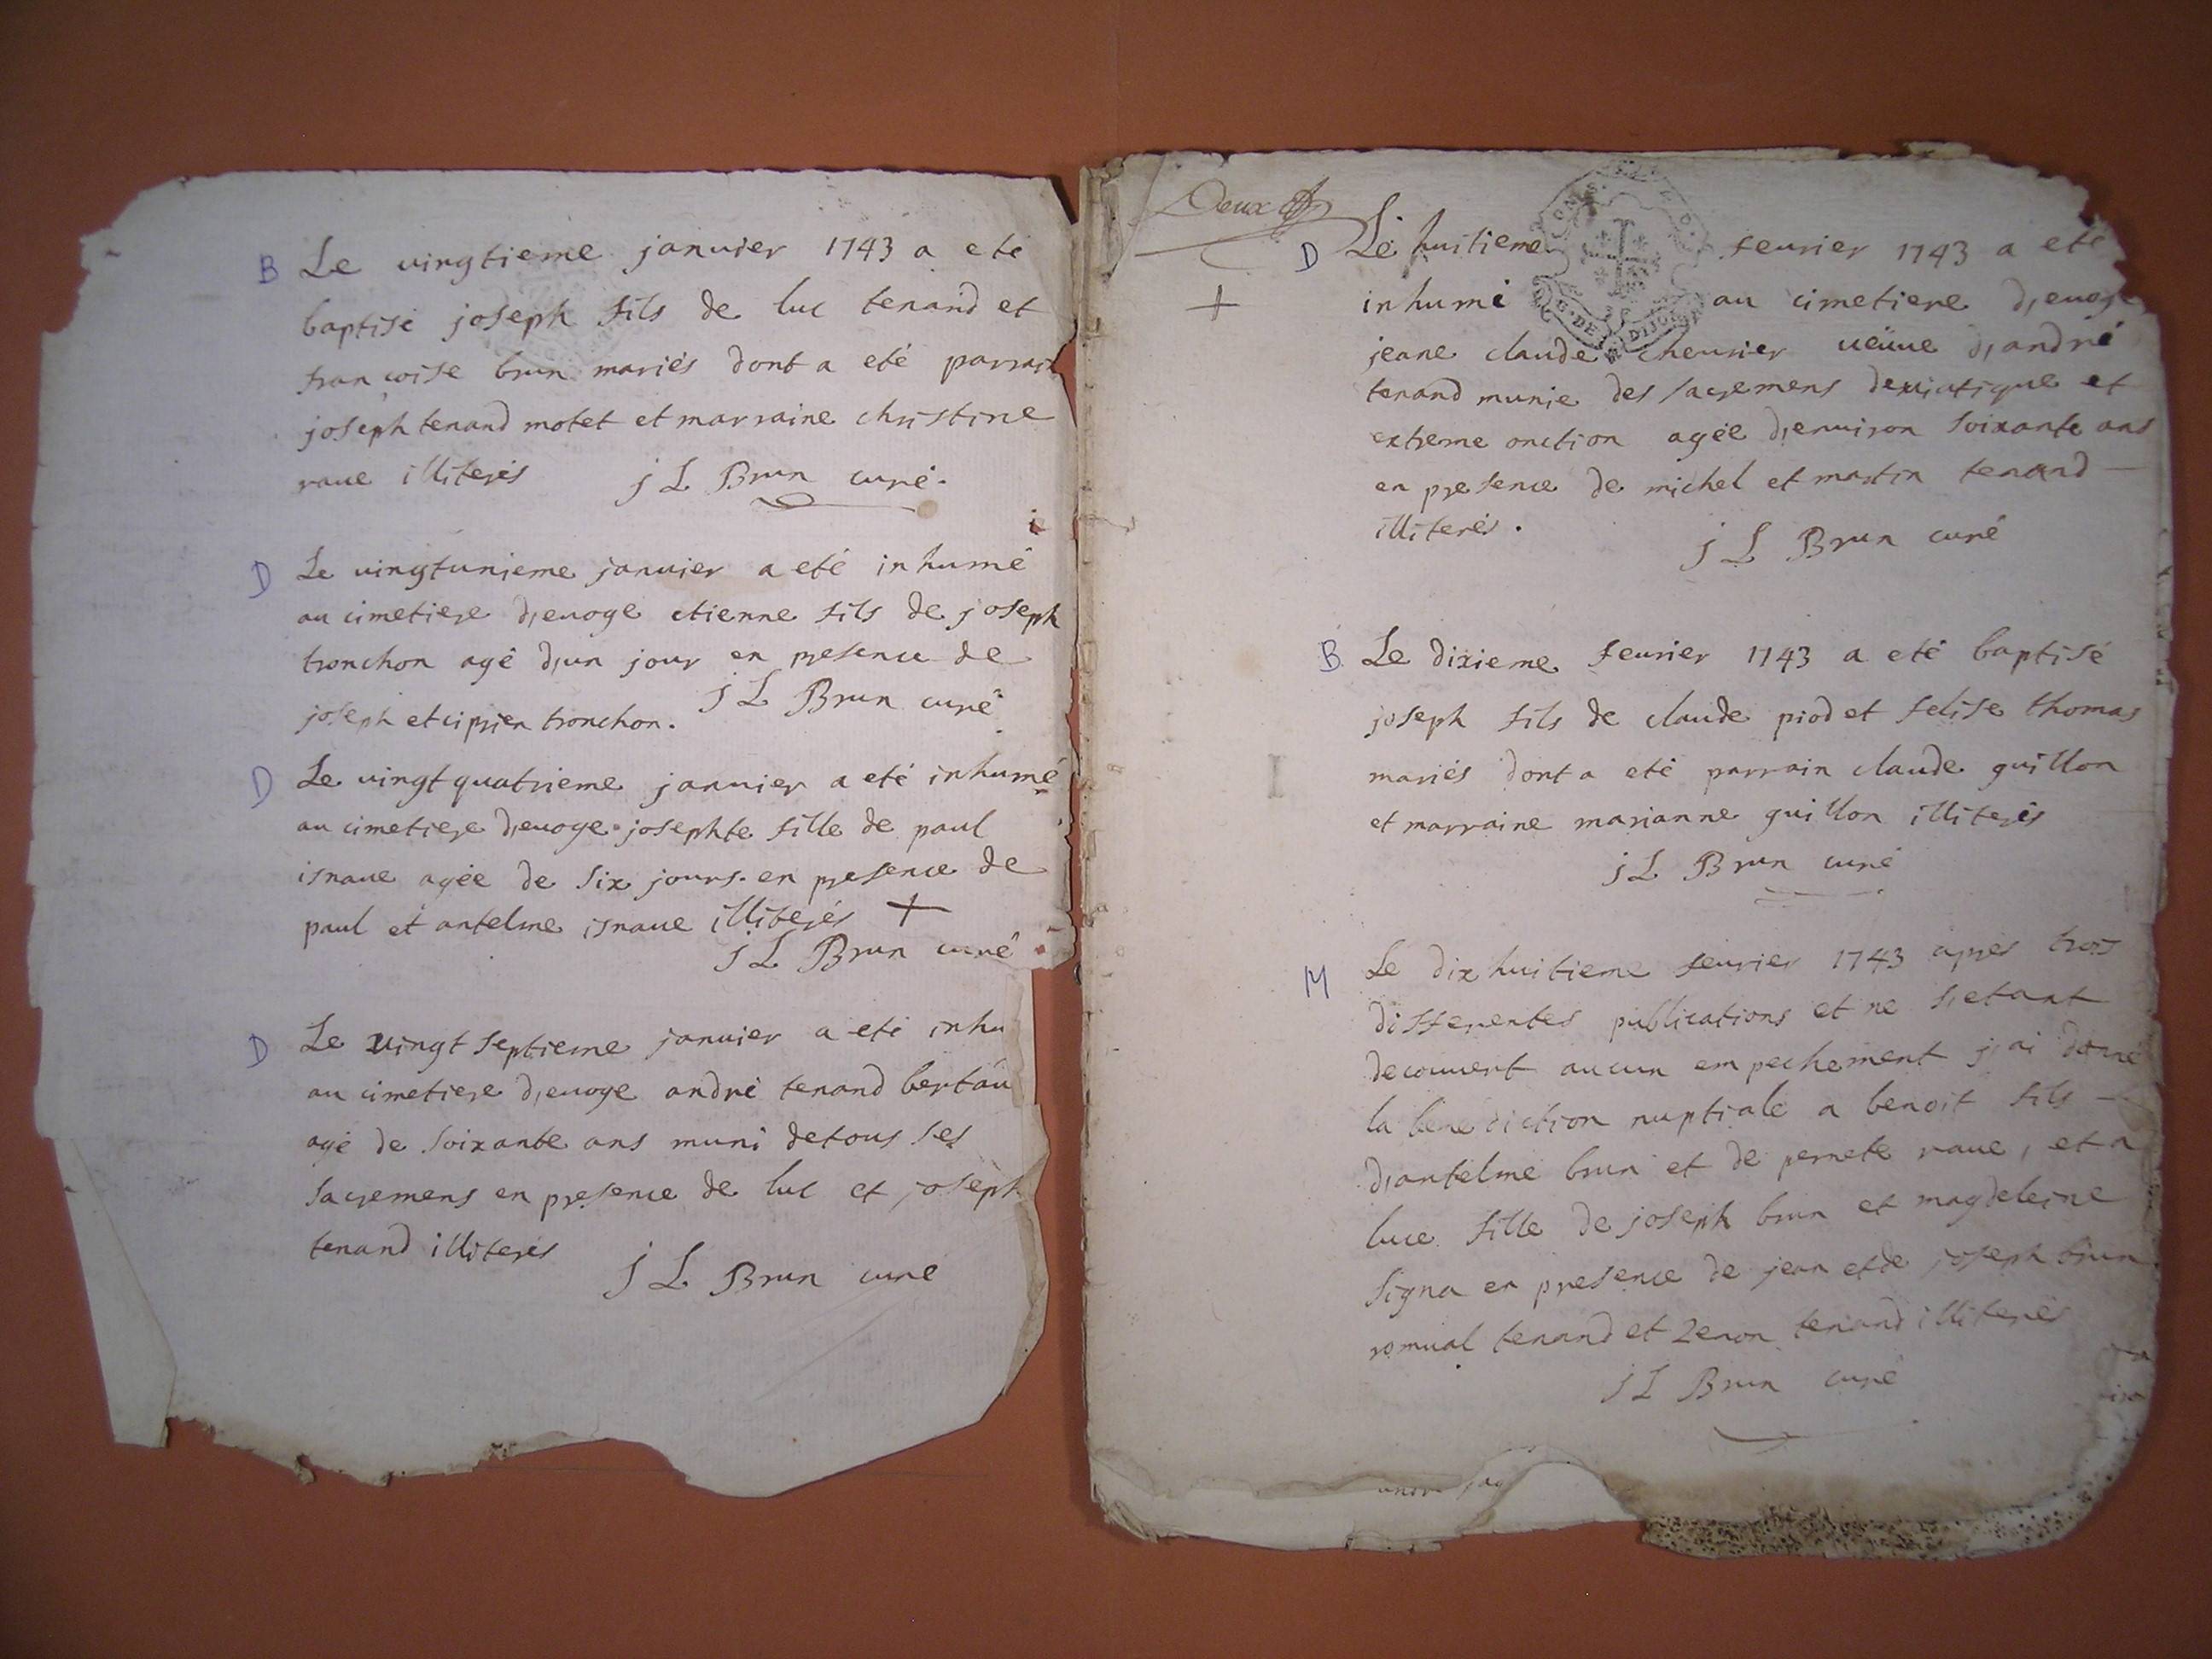 B Le vingtieme janvier 1743 a eté
baptisé joseph fils de luc tenand et
francoise brun mariés dont a eté parrain
joseph tenand motet et marraine christine
raue illiterés j L Brun curé.
D Le vingtunieme janvier a eté inhumé
au cimetiere d'evoge etienne fils de joseph
tronchon agé d'un jour en presence de
joseph et ciprien tronchon. j L Brun curé
D Le vingt quatrieme janvier a eté inhumé
au cimetiere d'evoge josephte fille de paul
isnaue agée de six jours en presence de
paul et antelme isnaue illiterés +
j L Brun curé
D Le vingt septieme janvier a eté inhu
au cimetiere d'evoge andré tenand bertau
agé de soixante ans muni de tous ses
sacremens en presence de luc et joseph
tenand illiterés
j L Brun curé
Deux
D Le huitieme fevrier 1743 a eté
+ inhumé au cimetiere d'evoge
DE DIJON
jeane claude chevrier veüve d'andré
tenand munie des sacremens de viatique et
extreme onction agée d'environ soixante ans
en presence de michel et martin tenand
illiterés.
j L Brun curé
B Le dixieme fevrier 1743 a eté baptisé
joseph fils de claude piod et felise thomas
mariés dont a eté parrain claude guillon
et marraine marianne guillon illiterés
j L Brun curé
M Le dix huitieme fevrier 1743 apres trois
differentes publications et ne s'etant
decouvert aucun empechement j'ai donné
la benediction nuptiale a benoit fils
d'antelme brun et de pernete raue, et a
luce fille de joseph brun et magdeleine
signa en presence de jean et de joseph brun
romual tenand et Zenon tenand illiterés
j L Brun curé